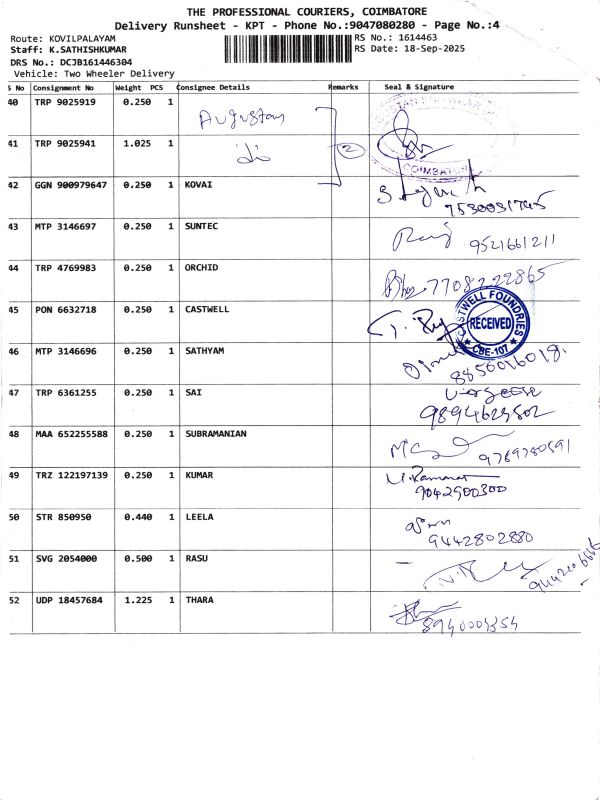 THE PROFESSIONAL COURIERS, COIMBATORE
Delivery Runsheet - KPT - Phone No.:9047080280 - Page No.:4
Route: KOVILPALAYAM
RS No.: 1614463
Staff: K.SATHISHKUMAR
RS Date: 18-Sep-2025
DRS No.: DCJB161446304
Vehicle: Two Wheeler Delivery
S No Consignment No Weight PCS Consignee Details Remarks Seal & Signature
40 TRP 9025919 0.250 1 Augustan
41 TRP 9025941 1.025 1 2
COIMBATORE
42 GGN 900979647 0.250 1 KOVAI
7530031745
43 MTP 3146697 0.250 1 SUNTEC
9521661211
44 TRP 4769983 0.250 1 ORCHID 7708222865
45 PON 6632718 0.250 1 CASTWELL
CASTWELL FOUNDRIES
RECEIVED
CBE-107
46 MTP 3146696 0.250 1 SATHYAM
8850016018.
47 TRP 6361255 0.250 1 SAI
9894623502
48 MAA 652255588 0.250 1 SUBRAMANIAN
9789780591
49 TRZ 122197139 0.250 1 KUMAR
9042900300
50 STR 850950 0.440 1 LEELA
9442802880
51 SVG 2054000 0.500 1 RASU
52 UDP 18457684 1.225 1 THARA
8940004354